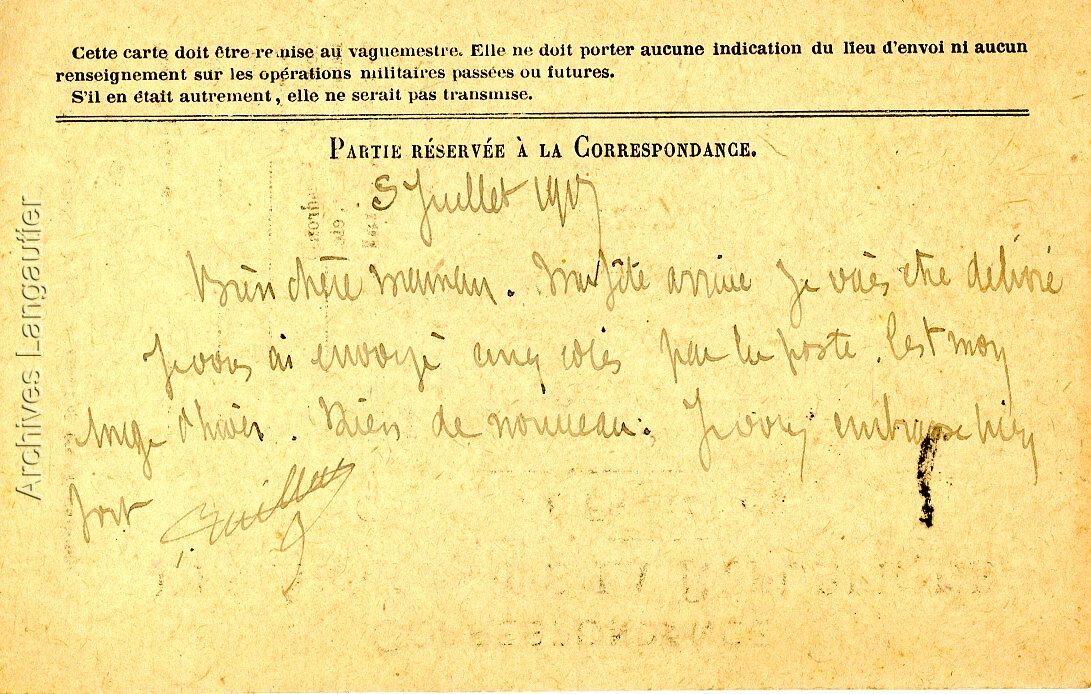 Cette carte doit être remise au vaguemestre. Elle ne doit porter aucune indication du lieu d'envoi ni aucun
renseignement sur les opérations militaires passées ou futures.
S'il en était autrement, elle ne serait pas transmise.
PARTIE RÉSERVÉE À LA CORRESPONDANCE.
5 Juillet 1917
Bien chère maman. Ma fête arrive Je vais être délivré
Je vous ai envoyé cinq colis par la poste. C'est mon
linge d'hiver. Rien de nouveau. Je vous embrasse bien
fort
Archives Langautier